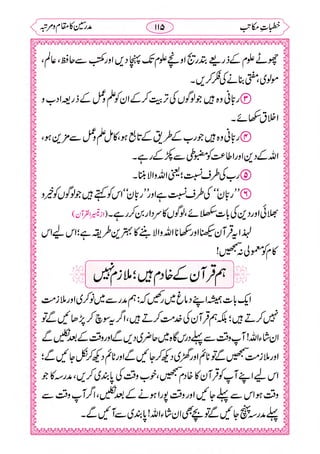 خطباتِ مکاتب ۱۱۵ مدرسین کا مقام و مرتبہ
چھوٹے علوم کے ذریعے بتدریج اونچے علوم تک پہنچا دیں اور مکتب سے حافظ، عالم،
مولوی، مفتی بنانے کی فکر کریں۔
③ ربّانی وہ ہیں جو لوگوں کی تربیت کر کے ان کو علم و عمل کے ذریعہ ادب و
اخلاق سکھائے۔
④ ربّانی وہ ہیں جو رب کے طریقے کے تابع ہو، کامل ہو، علم و عمل سے مزین ہو،
اللہ کے دین اور اطاعت کو مضبوطی سے پکڑ کے رہے۔
⑤ رب کی طرف نسبت؛ یعنی اللہ والا بننا۔
⑥ ’’ربّان‘‘ کی طرف نسبت ہے اور ’’ربّان‘‘ اس کو کہتے ہیں جو لوگوں کو خیر و
بھلائی اور دین کی بات سکھلائے، لوگوں کا سردار بن کر رہے۔ (از تحبیر القرآن)
لہٰذا یہ قرآن سیکھنا اور سکھانا اللہ والا بننے کا بہترین طریقہ ہے؛ اس لیے اس
کام کو معمولی نہ سمجھیں!
ہم قرآن کے خادم ہیں؛ ملازم نہیں
ایک بات ہمیشہ اپنے دماغ میں رکھیں کہ: ہم مدرسے میں نوکری اور ملازمت
نہیں کرتے ہیں؛ بلکہ ہم قرآن کی خدمت کرتے ہیں، اگر یہ سوچ کر پڑھائیں گے تو
ان شاء اللہ! آپ وقت سے پہلے درس گاہ میں حاضری دیں گے اور وقت کے بعد نکلیں گے
اور ملازمت سمجھیں گے تو ٹائم اور گھڑی دیکھ کر آئیں گے اور ٹائم دیکھ کر نکل جائیں گے؛
اس لیے اپنے آپ کو قرآن کا خادم سمجھیں، خوب وقت کی پابندی کریں، مدرسہ کا جو
وقت ہو اس سے پہلے جائیں اور پورا وقت ہونے کے بعد نکلیں، اگر آپ وقت سے
پہلے مدرسہ پہنچ جائیں گے تو بچے بھی ان شاء اللہ! پابندی سے آئیں گے۔